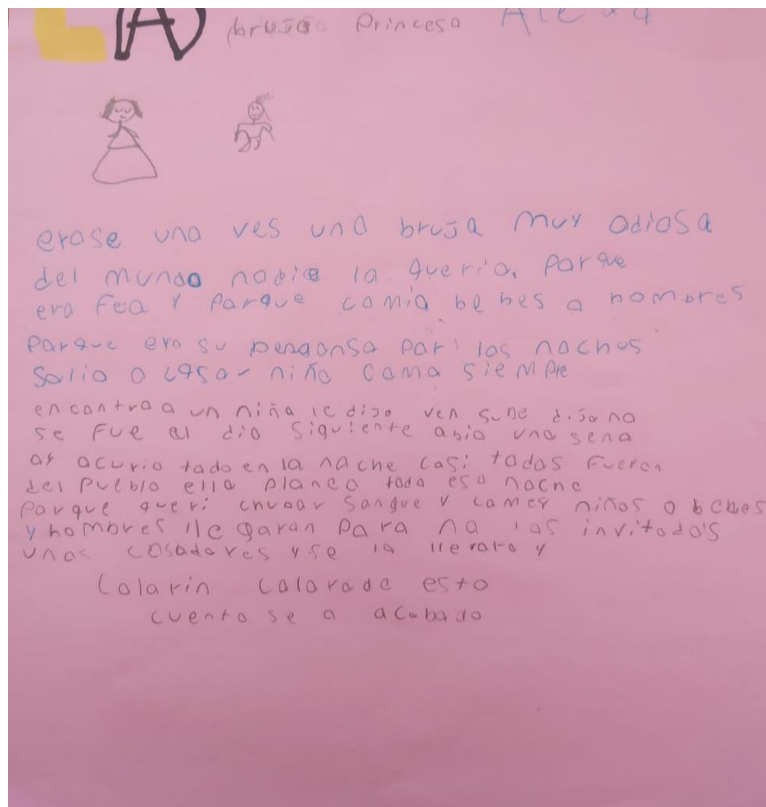 LA bruja Princesa Alexa
erase una ves una bruja muy odiosa
del mundo nadie la queria. Parque
era Fea y Parque camia bebes a hombres
Parque era su pengansa Par las naches
Salia a casar niño cama siempre
encantra a un niña le dijo ven sube dijo na
se fue al dia siguiente abia una sena
ay acurio tada en la nache casi tadas fueren
del Pueblo ella planea tada esa nache
Parque queri chupar sangre y camer niños a bebes
y hombres llegaran Para na las invitada's
unas casadores y se la llevara y
Calarin Calarada esta
cuento se a acabado